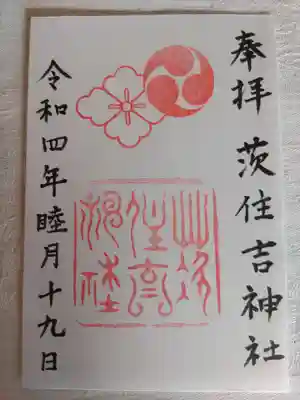 奉拝 茨住吉神社
令和四年睦月十九日